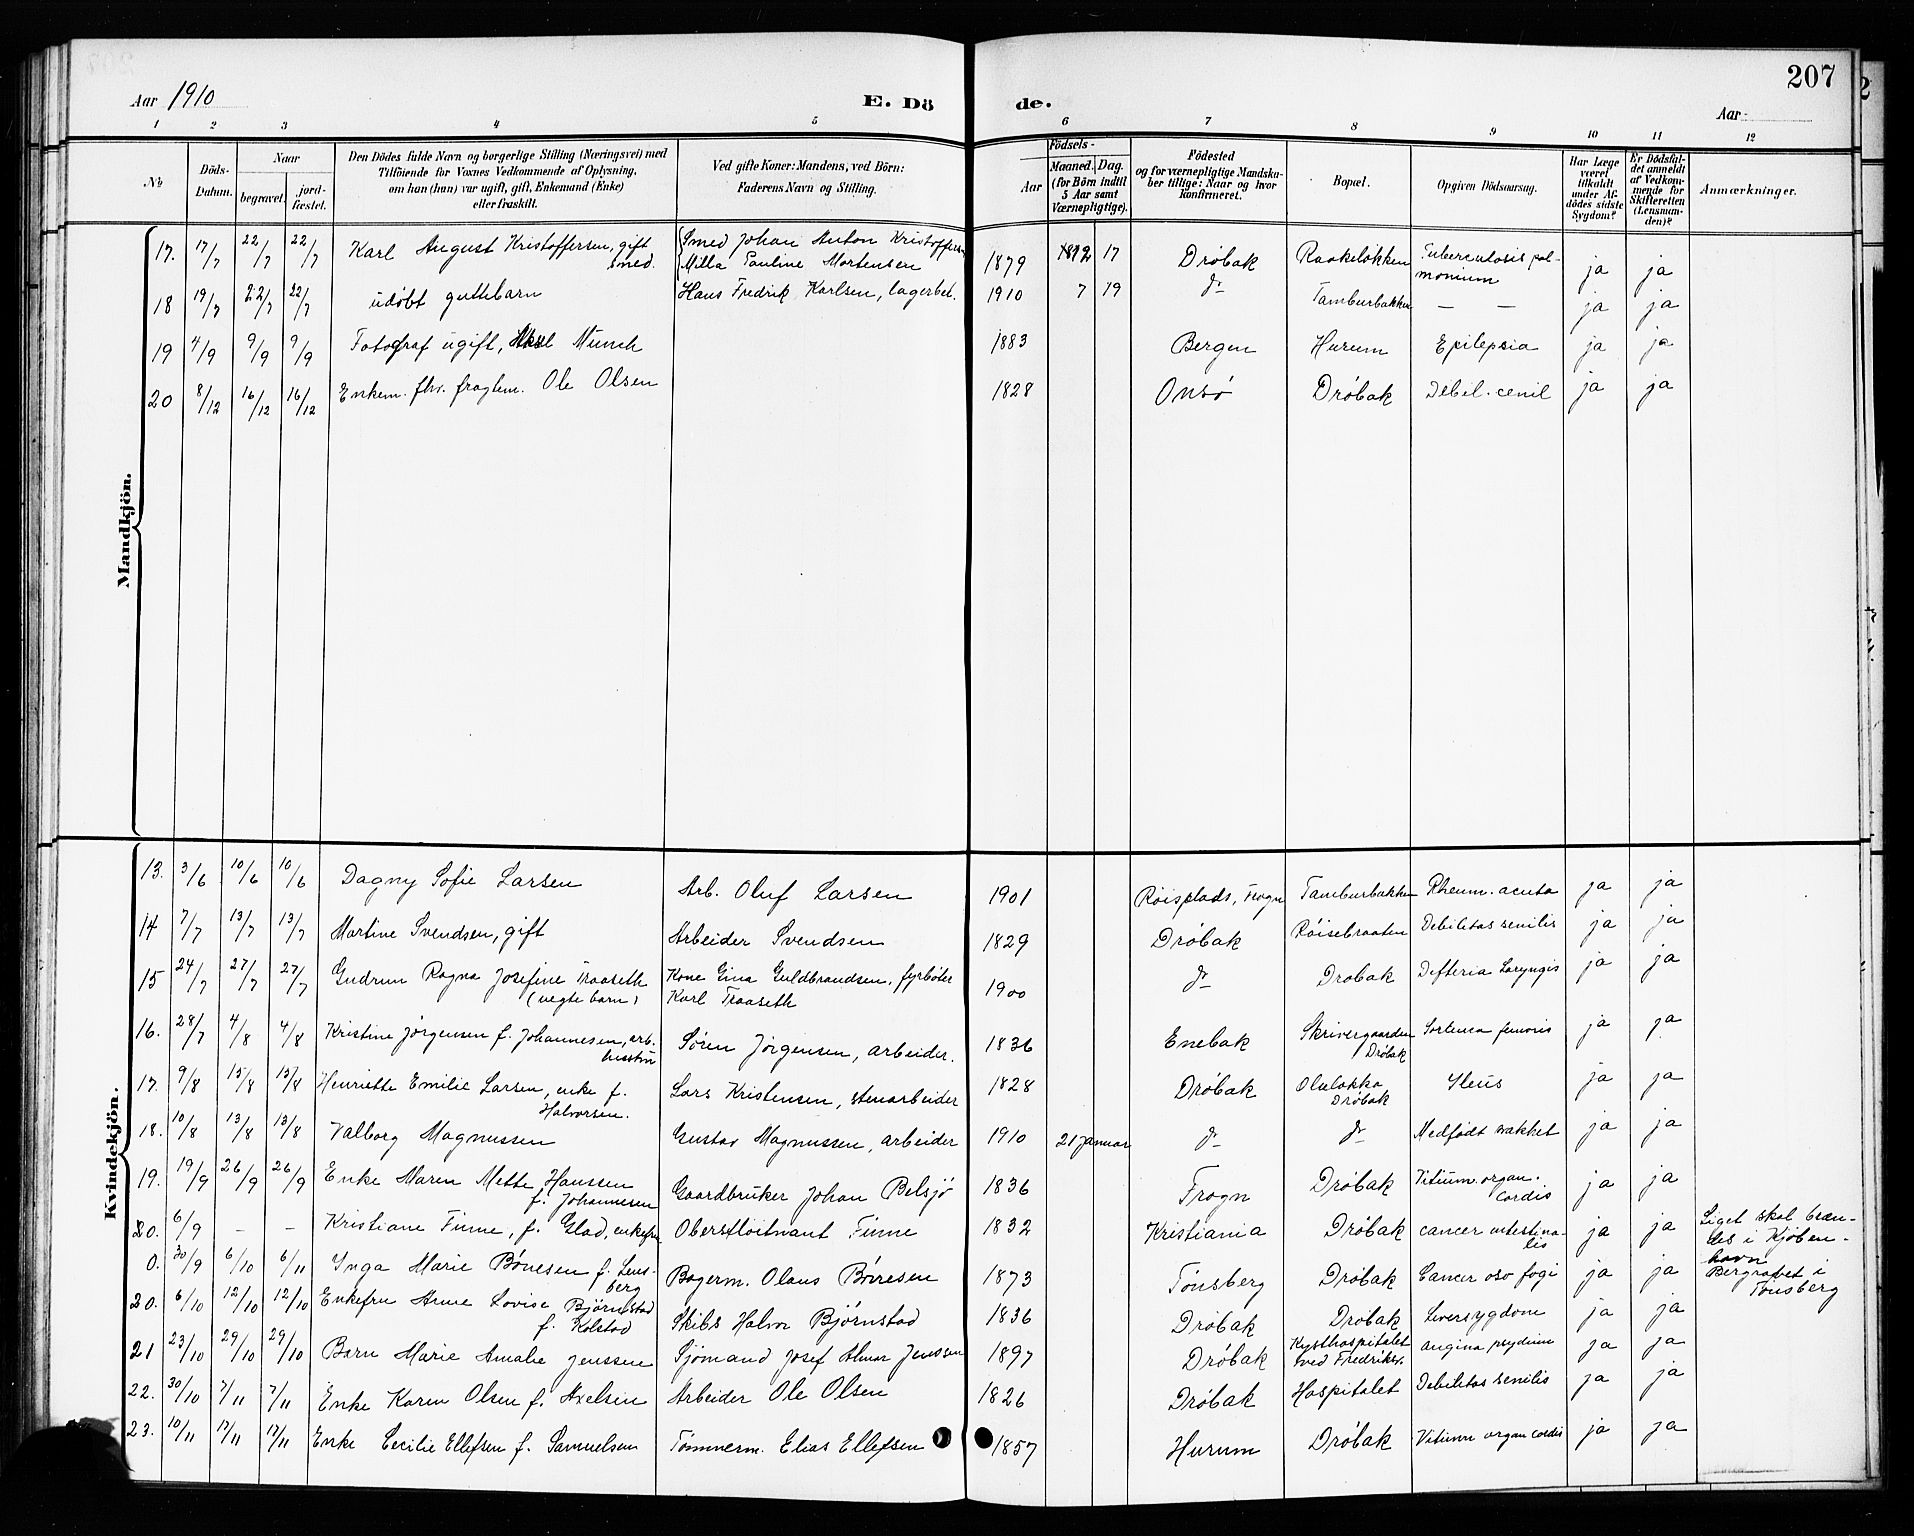 207
Aar 1910
E. Dö de.
Aar
1 2 3 4 5 6 7 8 9 10 11 12
No
Döds-Datum.
Naar
begravet.
jord-fæstet.
Den Dödes fulde Navn og borgerlige Stilling (Næringsvei) med
Tilföiende for Voxnes Vedkommende af Oplysning,
om han (hun) var ugift, gift, Enkemand (Enke)
eller fraskilt.
Ved gifte Koner: Mandens, ved Börn:
Faderens Navn og Stilling.
Födsels-
Aar
Maaned. Dag.
(for Börn indtil
5 Aar samt
Værnepligtige).
Födested
og for værnepligtige Mandska-
ber tillige: Naar og hvor
konfirmeret.
Bopæl.
Opgiven Dödsaarsag.
Har Læge
været
tilkaldt
under Af-
dödes sidste
Sygdom?
Er Dödsfal-
det anmeldt
af Vedkom-
mende for
Skifteretten
(Lensman-
den)?
Anmærkninger.
Mandkjön.
17. 17/7 22/7 22/7 Karl August Kristoffersen, gift smed. Smed Johan Anton Kristoffersen Milla Pauline Mortensen 1879 12 17 Dröbak Raakeløkken Tuberculosis pulmonium ja ja
18 19/7 22/7 22/7 udöbt guttebarn Hans Fredrik Karlsen, lagerbet. 1910 7 19 do Tamburbakken — — ja ja
19 4/9 9/9 9/9 Fotograf ugift, Munch 1883 Bergen Hurum Epilepsia ja ja
20 8/12 16/12 16/12 Enkem. fhv. fragtem. Ole Olsen 1828 Onsö Dröbak Debil. cenil ja ja
Kvindekjön.
13. 3/6 10/6 10/6 Dagny Sofie Larsen Arb. Oluf Larsen 1901 Röisplads, Frogn Tamburbakken Rheum. acuta ja ja
14 7/7 13/7 13/7 Martine Svendsen, gift Arbeider Svendsen 1829 Dröbak Röisebraaten Debilitas senilis ja ja
15 24/7 27/7 27/7 Gudrun Ragna Josefine Traaseth (uegte barn) Kone Gina Guldbrandsen, fyrbøter Karl Traaseth 1900 do Drobak Difteria Laryngis ja ja
16. 28/7 4/8 4/8 Kristine Jörgensen f. Johannesen, arb. hustru Sören Jörgensen, arbeider. 1836 Enebak Skrivergaarden Dröbak femoris ja ja
17. 9/8 15/8 15/8 Henriette Emilie Larsen, enke f. Halvorsen. Lars Kristensen, stenarbeider 1828 Dröbak Oleløkka Dröbak Ileus ja ja
18. 10/8 13/8 13/8 Valborg Magnussen Gustav Magnussen, arbeider 1910 21 januar do do Medfödt svakhet ja ja
19. 19/9 26/9 26/9 Enke Maren Mette Hanssen f. Johannesen Gaardbruker Johan Belsjö 1836 Frogn Dröbak Vitium organ. cordis ja ja
20. 6/9 — — Kristiane Finne, f. Glad, enkefru Oberstløitnant Finne 1832 Kristiania Dröbak cancer intestinalis ja ja Liget skal bræn-
des i Kjöben-
havn
0. 30/9 6/10 6/11 Ynga Marie Börresen f. Lensberg Bagerm. Olaus Börresen 1873 Tönsberg Dröbak Cancer oso fogi ja ja Bergravet i
Tönsberg
20. 6/10 12/10 12/10 Enkefru Anne Lovise Björnstad f. Kolstad Skibs Halvor Björnstad 1836 Dröbak Dröbak Leversygdom ja ja
21 23/10 29/10 29/10 Barn Marie Amalie Jenssen Sjömand Josef Jenssen 1897 Dröbak Kysthospitalet ved Fredriksv. angina ja ja
22. 30/10 7/11 7/11 Enke Karen Olsen f. Axelsen Arbeider Ole Olsen 1826 Dröbak Hospitalet Debilitas senilis ja ja
23. 10/11 17/11 17/11 Enke Cecilie Ellefsen f. Samuelsen Tömmerm. Elias Ellefsen 1857 Hurum Dröbak Vitium organ cordis ja ja